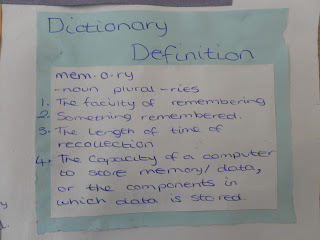 Dictionary
Definition
mem-o-ry
-noun plural -ries
1. The faculty of remembering
2. Something remembered.
3. The length of time of
recollection
4. The capacity of a computer
to score memory/data,
or the components in
which data is stored.